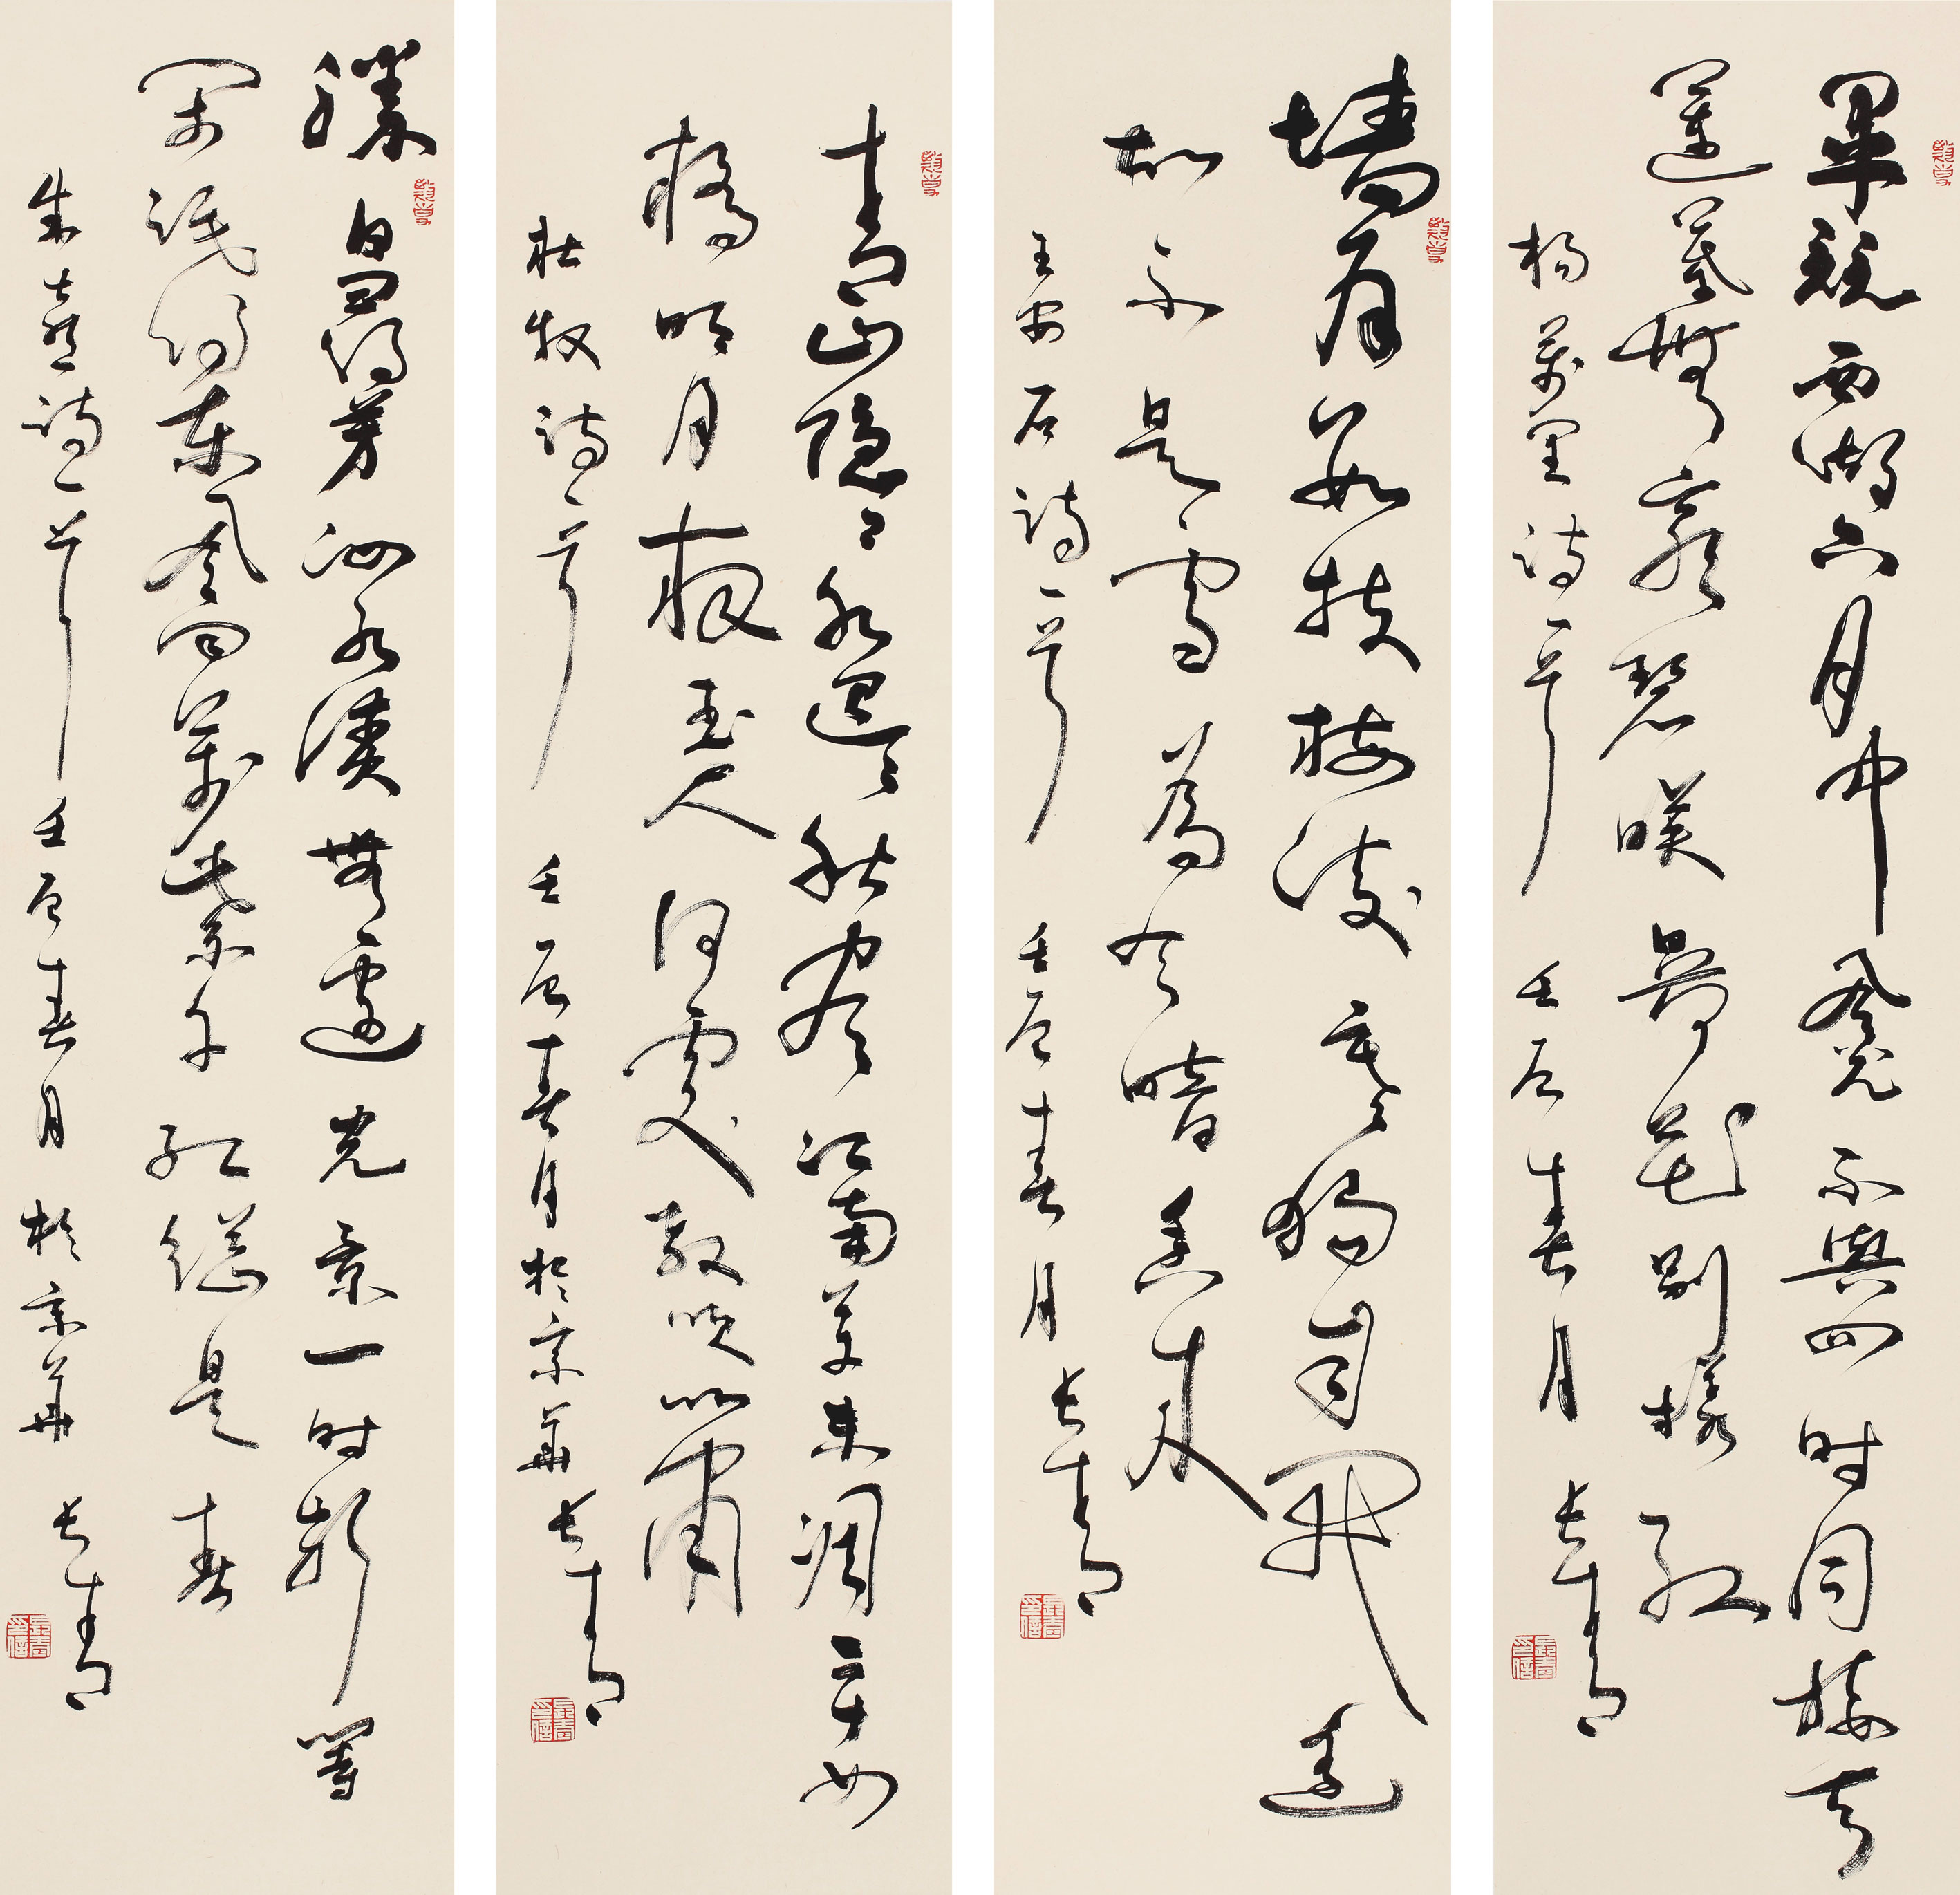 畢竟西湖六月中風光不與四时同接天
蓮葉無窮碧映日荷花別樣紅
楊萬里詩一首 壬辰春月 長青
墻角數枝梅凌寒獨自開遥
知不是雪為有暗香来
王安石詩一首 壬辰春月 長青
青山隱〻水迢〻秋盡江南草未凋二十四
橋明月夜玉人何處教吹簫
杜牧詩一首 壬辰春月於京華 長青
勝日尋芳泗水濱無邊光景一时新等
閑識得東風面萬紫千紅總是春
朱熹詩一首 壬辰春月於京華 長青